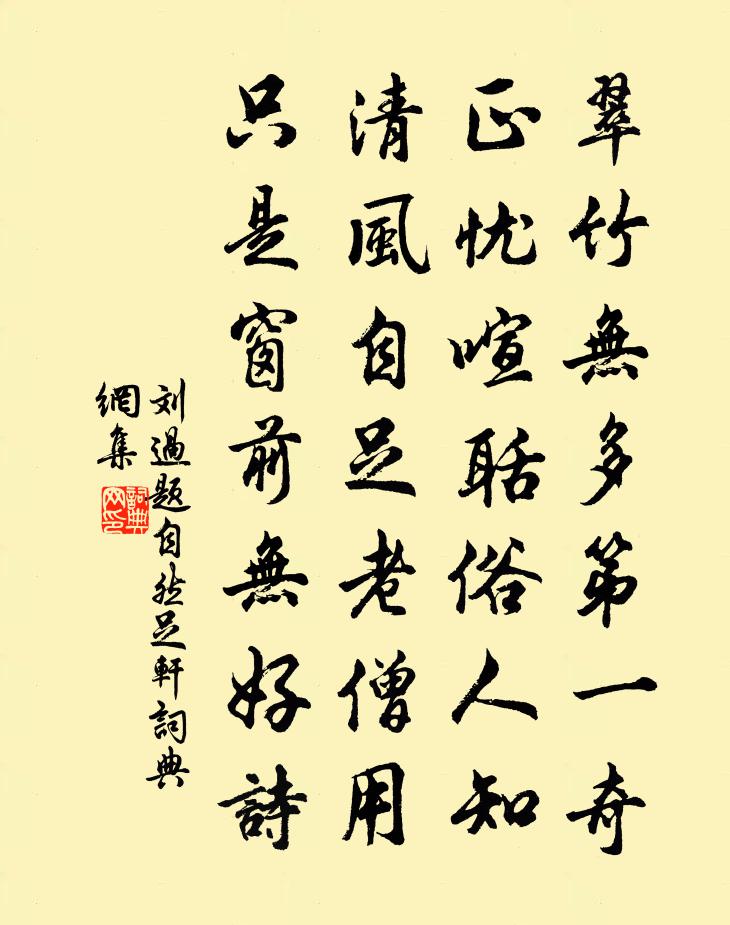 翠竹無多第一奇
正忧喧聒俗人知
清風自足老僧用
只是窗前無好詩
刘過題自然足軒詞典
網集
詞典
网印